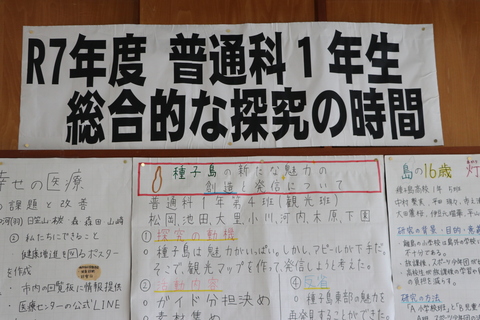 R7年度 普通科1年生
総合的な探究の時間
幸せの医療
の課題と改善
② 私たちにできること
健康増進を図るポスター
を作成
・市内の回覧板に情報提供
・医療センターの公式LINE
種子島の新たな魅力の
創造と発信について
普通科1年第4班(観光班)
松岡,池田,大里,小川,河内,木原,下園
① 探究の動機
・種子島は魅力がいっぱい。しかし、アピールが下手だ。
そこで、観光マップを作って、発信しようと考えた。
② 活動内容
・ガイド分担決め
・素材集め
④ 反省
・種子島東部の魅力を
再発見することができた
島の16歳
研究の背景・目的・意義
研究の方法